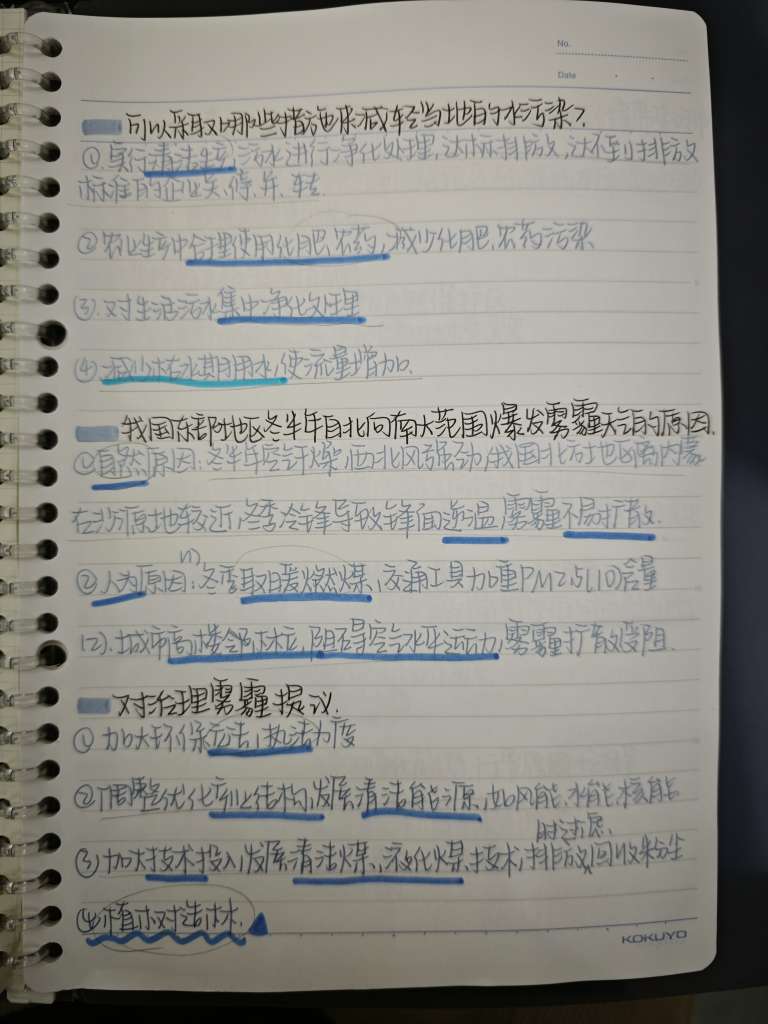 No.
Date
可以采取哪些措施来减轻当地的水污染?
①.实行清洁生产,污水进行净化处理,达标排放,达不到排放
标准的企业关、停、并、转.
②农业生产中合理使用化肥、农药,减少化肥、农药污染
③.对生活污水集中净化处理
④.减少枯水期用水,使流量增加.
我国东部地区冬半年自北向南大范围爆发雾霾天气的原因.
①自然原因:冬半年空气干燥,西北风强劲,我国北方地区离内蒙
古沙源地较近,冬季冷锋导致锋面逆温,雾霾不易扩散.
②人为原因:(1)冬季取暖燃煤,交通工具加重PM2.5(10)含量
(2).城市高楼邻林立,阻碍空气水平运动,雾霾扩散受阻.
对治理雾霾提议.
①加大环保立法,执法力度
②调整优化产业结构,发展清洁能源,如风能、水能、核能
③加大技术投入,发展清洁煤、液化煤技术,排放时过滤,回收粉尘
④植树造林.
KOKUYO